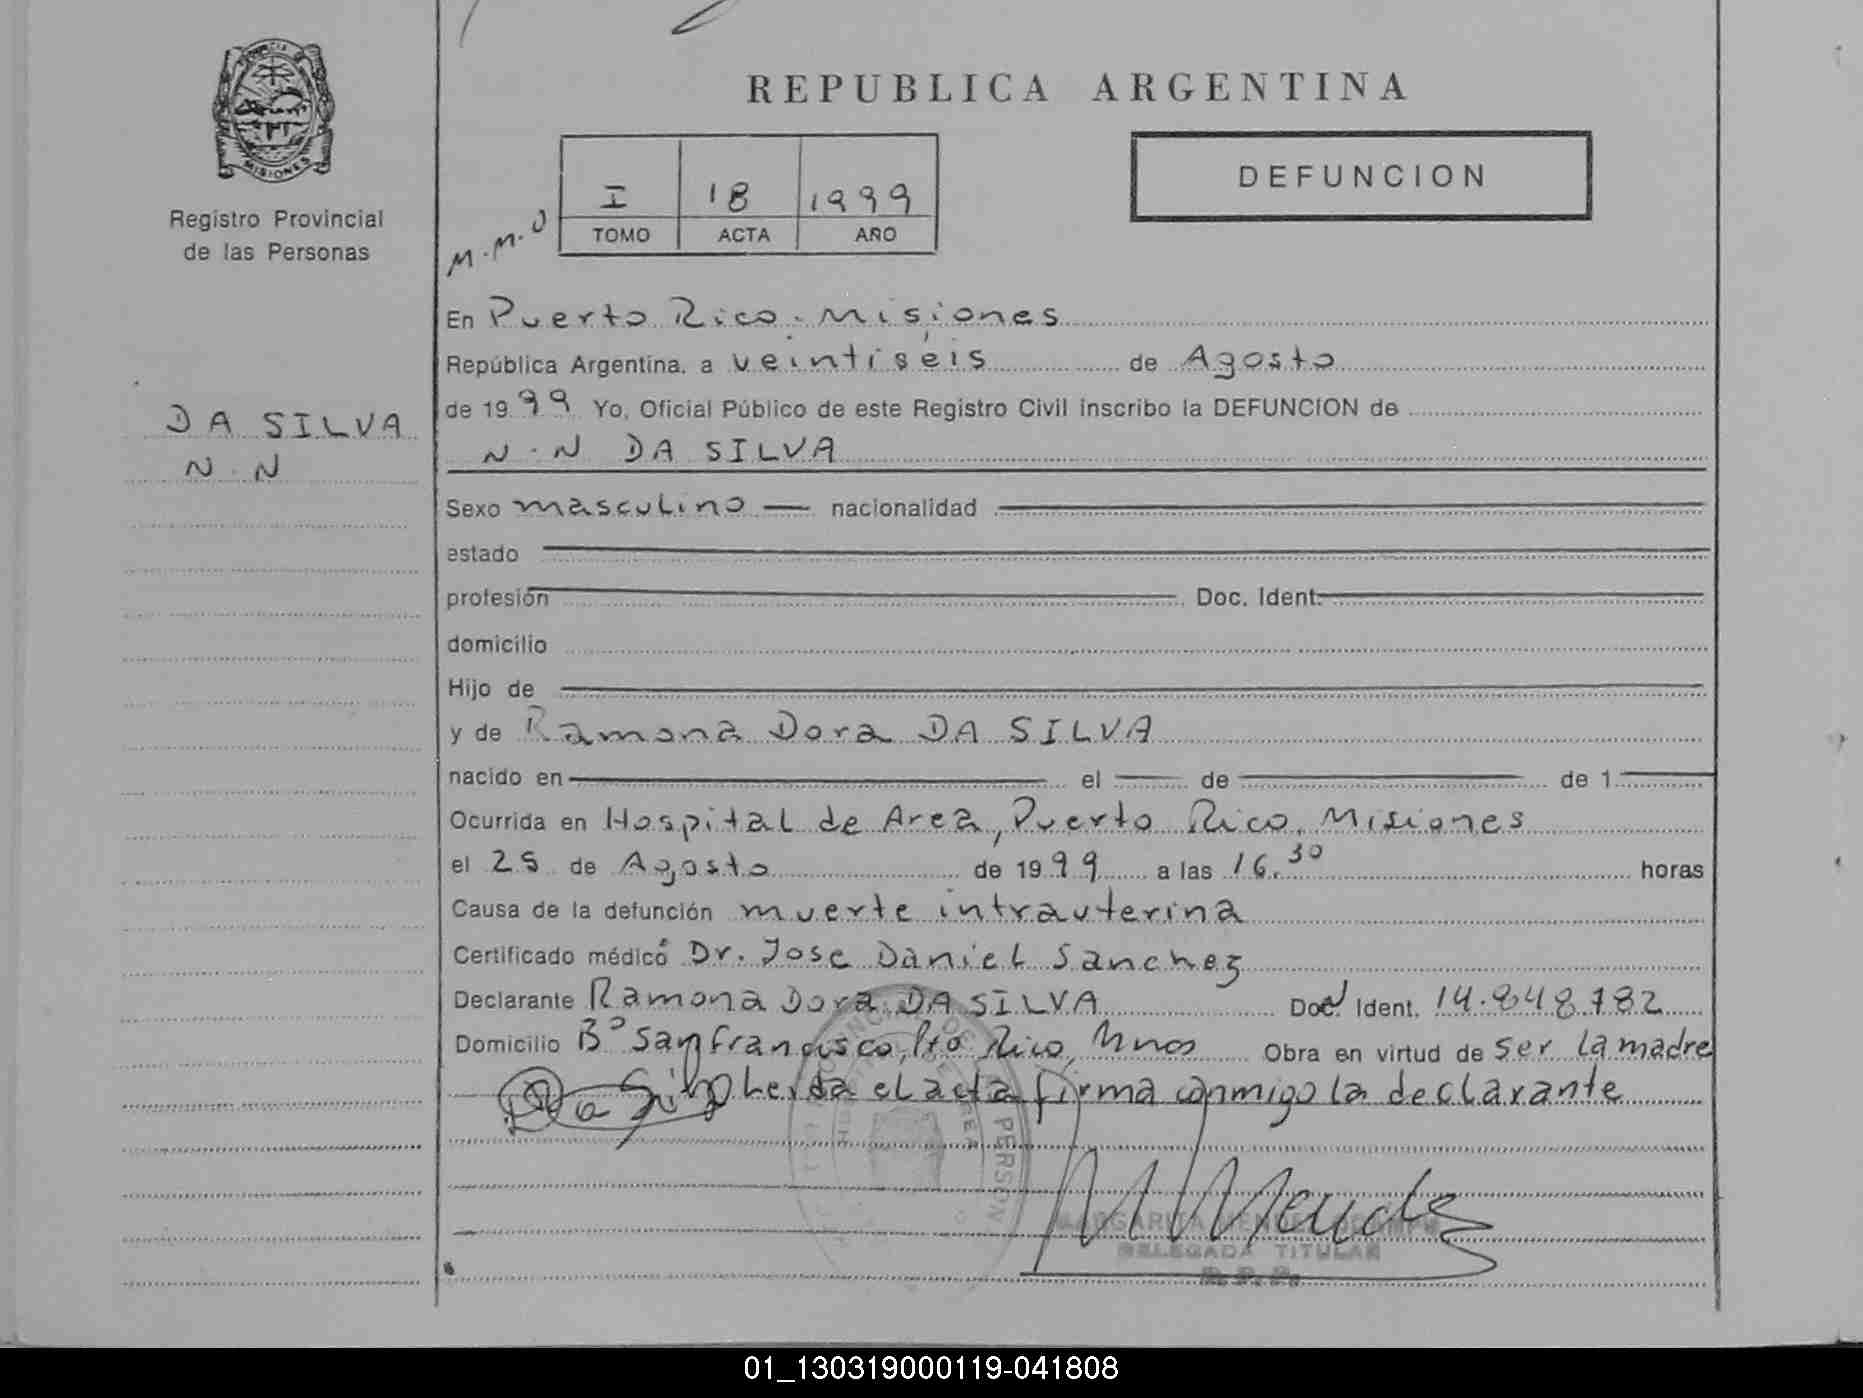 REPUBLICA ARGENTINA
MISIONES
Registro Provincial
de las Personas
I 18 1999
TOMO ACTA AÑO
DEFUNCION
M.M.O
En Puerto Rico. Misiones
República Argentina, a veintiséis de Agosto
de 1999 Yo, Oficial Público de este Registro Civil inscribo la DEFUNCION de
N.N DA SILVA
DA SILVA
N.N
Sexo masculino — nacionalidad
estado
profesión Doc. Ident.
domicilio
Hijo de
y de Ramona Dora DA SILVA
nacido en el de de 1
Ocurrida en Hospital de Area, Puerto Rico, Misiones
el 25 de Agosto de 1999 a las 16.30 horas
Causa de la defunción muerte intrauterina
Certificado médico Dr. Jose Daniel Sanchez
Declarante Ramona Dora DA SILVA Doc. Ident. 14.848.782
Domicilio Bº San francisco, Pto Rico, Mnes Obra en virtud de ser la madre
Leida el acta firma conmigo la declarante
Da Silva
M Mendez
MARGARITA MENDEZ OCAMPO
DELEGADA TITULAR
R. P. P.
01_130319000119-041808